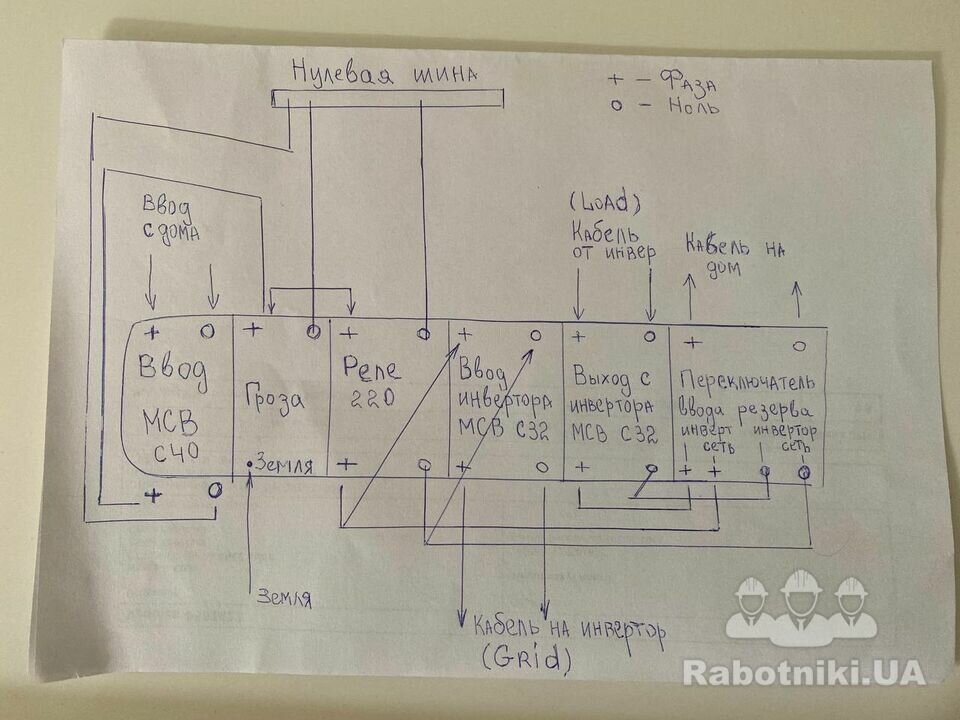 Нулевая шина
+ – Фаза
о – Ноль
Ввод
с дома
(LOAd)
Кабель
от инвер
Кабель на
дом
+ о + о + о + о + о + о
Ввод
МСВ
с40
Гроза
Реле
220
Ввод
инвертора
МСВ С32
Выход с
инвертора
МСВ С32
Переключатель
ввода резерва
инверт инвертор
сеть сеть
Земля
+ о + о + о + о + + о о
Земля
Кабель на инвертор
(Grid)
Rabotniki.UA